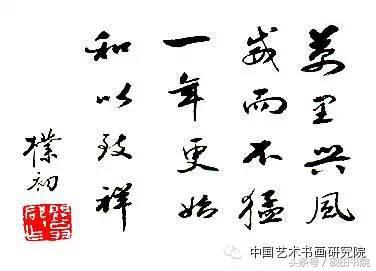 萬里兴风
威而不猛
一年更始
和以致祥
樸初
中国艺术书画研究院
头条号/砚田书院